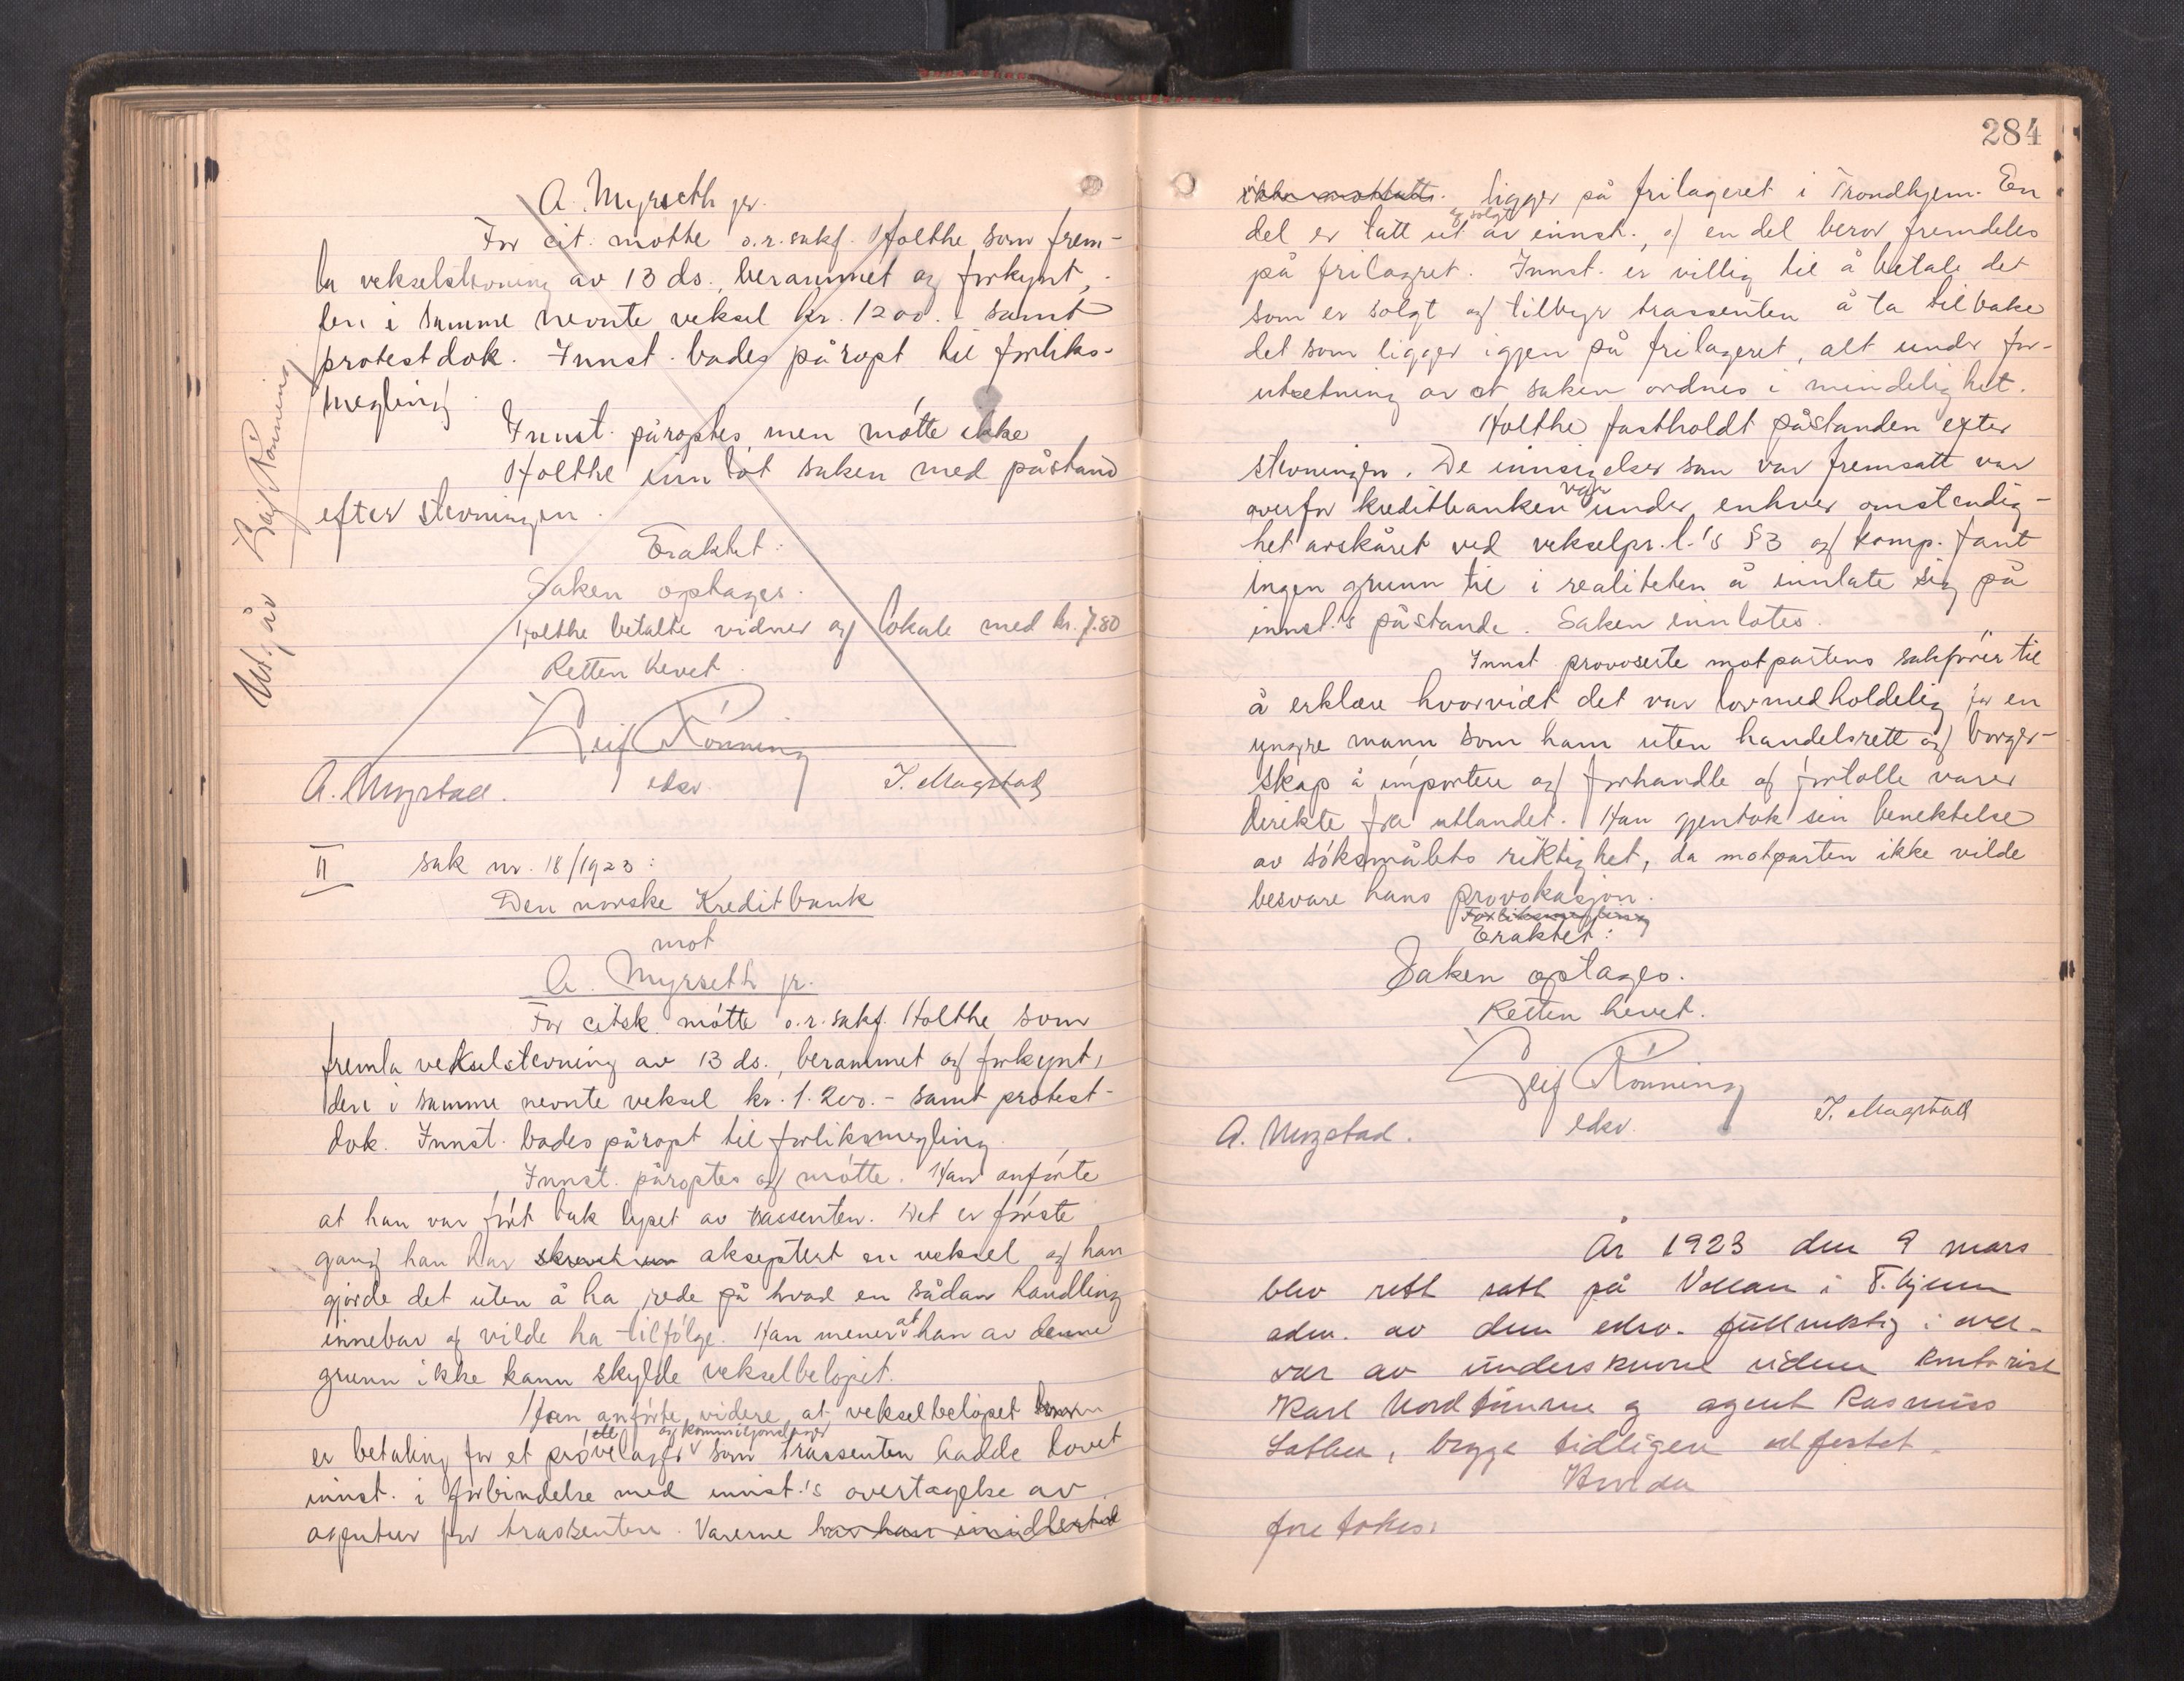 A. Myrseth jr.
For cit. møtte o.r.sakf. Holthe som frem-
la vekselstevning av 13 ds., berammet og forkynt,
den i samme nevnte veksel kr. 1200.- samt
protestdok. Innst. bades påropt til forliks-
megling.
Innst. påroptes, men møtte ikke
Holthe innlot saken med påstand
efter stevningen.
Eraktet:
Saken optages.
Holthe betalte vidner og lokale med kr. 7.80
Retten hevet.
Leif Rönning
edsv.
A. Mogstad.
I. Magstad
Utgår Leif Rönning
II sak nr. 18/1923:
Den norske Kreditbank
mot
A. Myrseth jr.
For citsk. møtte o.r.sakf. Holthe som
fremla vekselstevning av 13 ds., berammet og forkynt,
den i samme nevnte veksel kr. 1.200.- samt protest-
dok. Innst. bades påropt til forliksmegling.
Innst. påroptes og møtte. Han anførte
at han var ført bak lyset av trassenten. Det er første
gang han har akseptert en veksel og han
gjorde det uten å ha rede på hvad en sådan handling
innebar og vilde ha tilfølge. Han mener at han av denne
grunn ikke kann skylde vekselbeløpet.
Han anførte videre at vekselbeløpet
er betaling for et prøvelager og kommisjonslager som trassenten hadde lovet
innst. i forbindelse med innst.'s overtagelse av
agentur for trassenten. Varerne har han imidlertid
284
ikke mottatt. ligger på frilageret i Trondhjem. En
del er tatt ut og solgt av innst., og en del beror fremdeles
på frilagret. Innst. er villig til å betale det
som er solgt og tilbyr trassenten å ta tilbake
det som ligger igjen på frilageret, alt under for-
utsetning av at saken ordnes i mindelighet.
Holthe fastholdt påstanden efter
stevningen. De innsigelser som var fremsatt var
overfor kreditbanken under enhver omstendig-
het avskåret ved vekselpr.l.'s §3 og komp. fant
ingen grunn til i realiteten å innlate sig på
innst.'s påstande. Saken innlotes.
Innst provoserte motpartens sakfører til
å erklære hvorvidt det var lovmedholdelig for en
yngre mann som ham uten handelsrett og borger-
skap å importere og forhandle og fortolle varer
direkte fra utlandet. Han gjentok sin benektelse
av søksmålets riktighet, da motparten ikke vilde
besvare hans provokasjon.
Forliksmegling
Eraktet:
Saken optages.
Retten hevet.
Leif Rönning
edsv.
A. Mogstad.
I. Magstad
År 1923 den 9 mars
blev rett satt på Vollan i T.hjem
adm. av den edsv. fullmektig i over-
vær av underskrevne vidner kontorist
Karl Nordtømme og agent Rasmus
, begge tidligere edfestet.
Hvorda
foretokes: